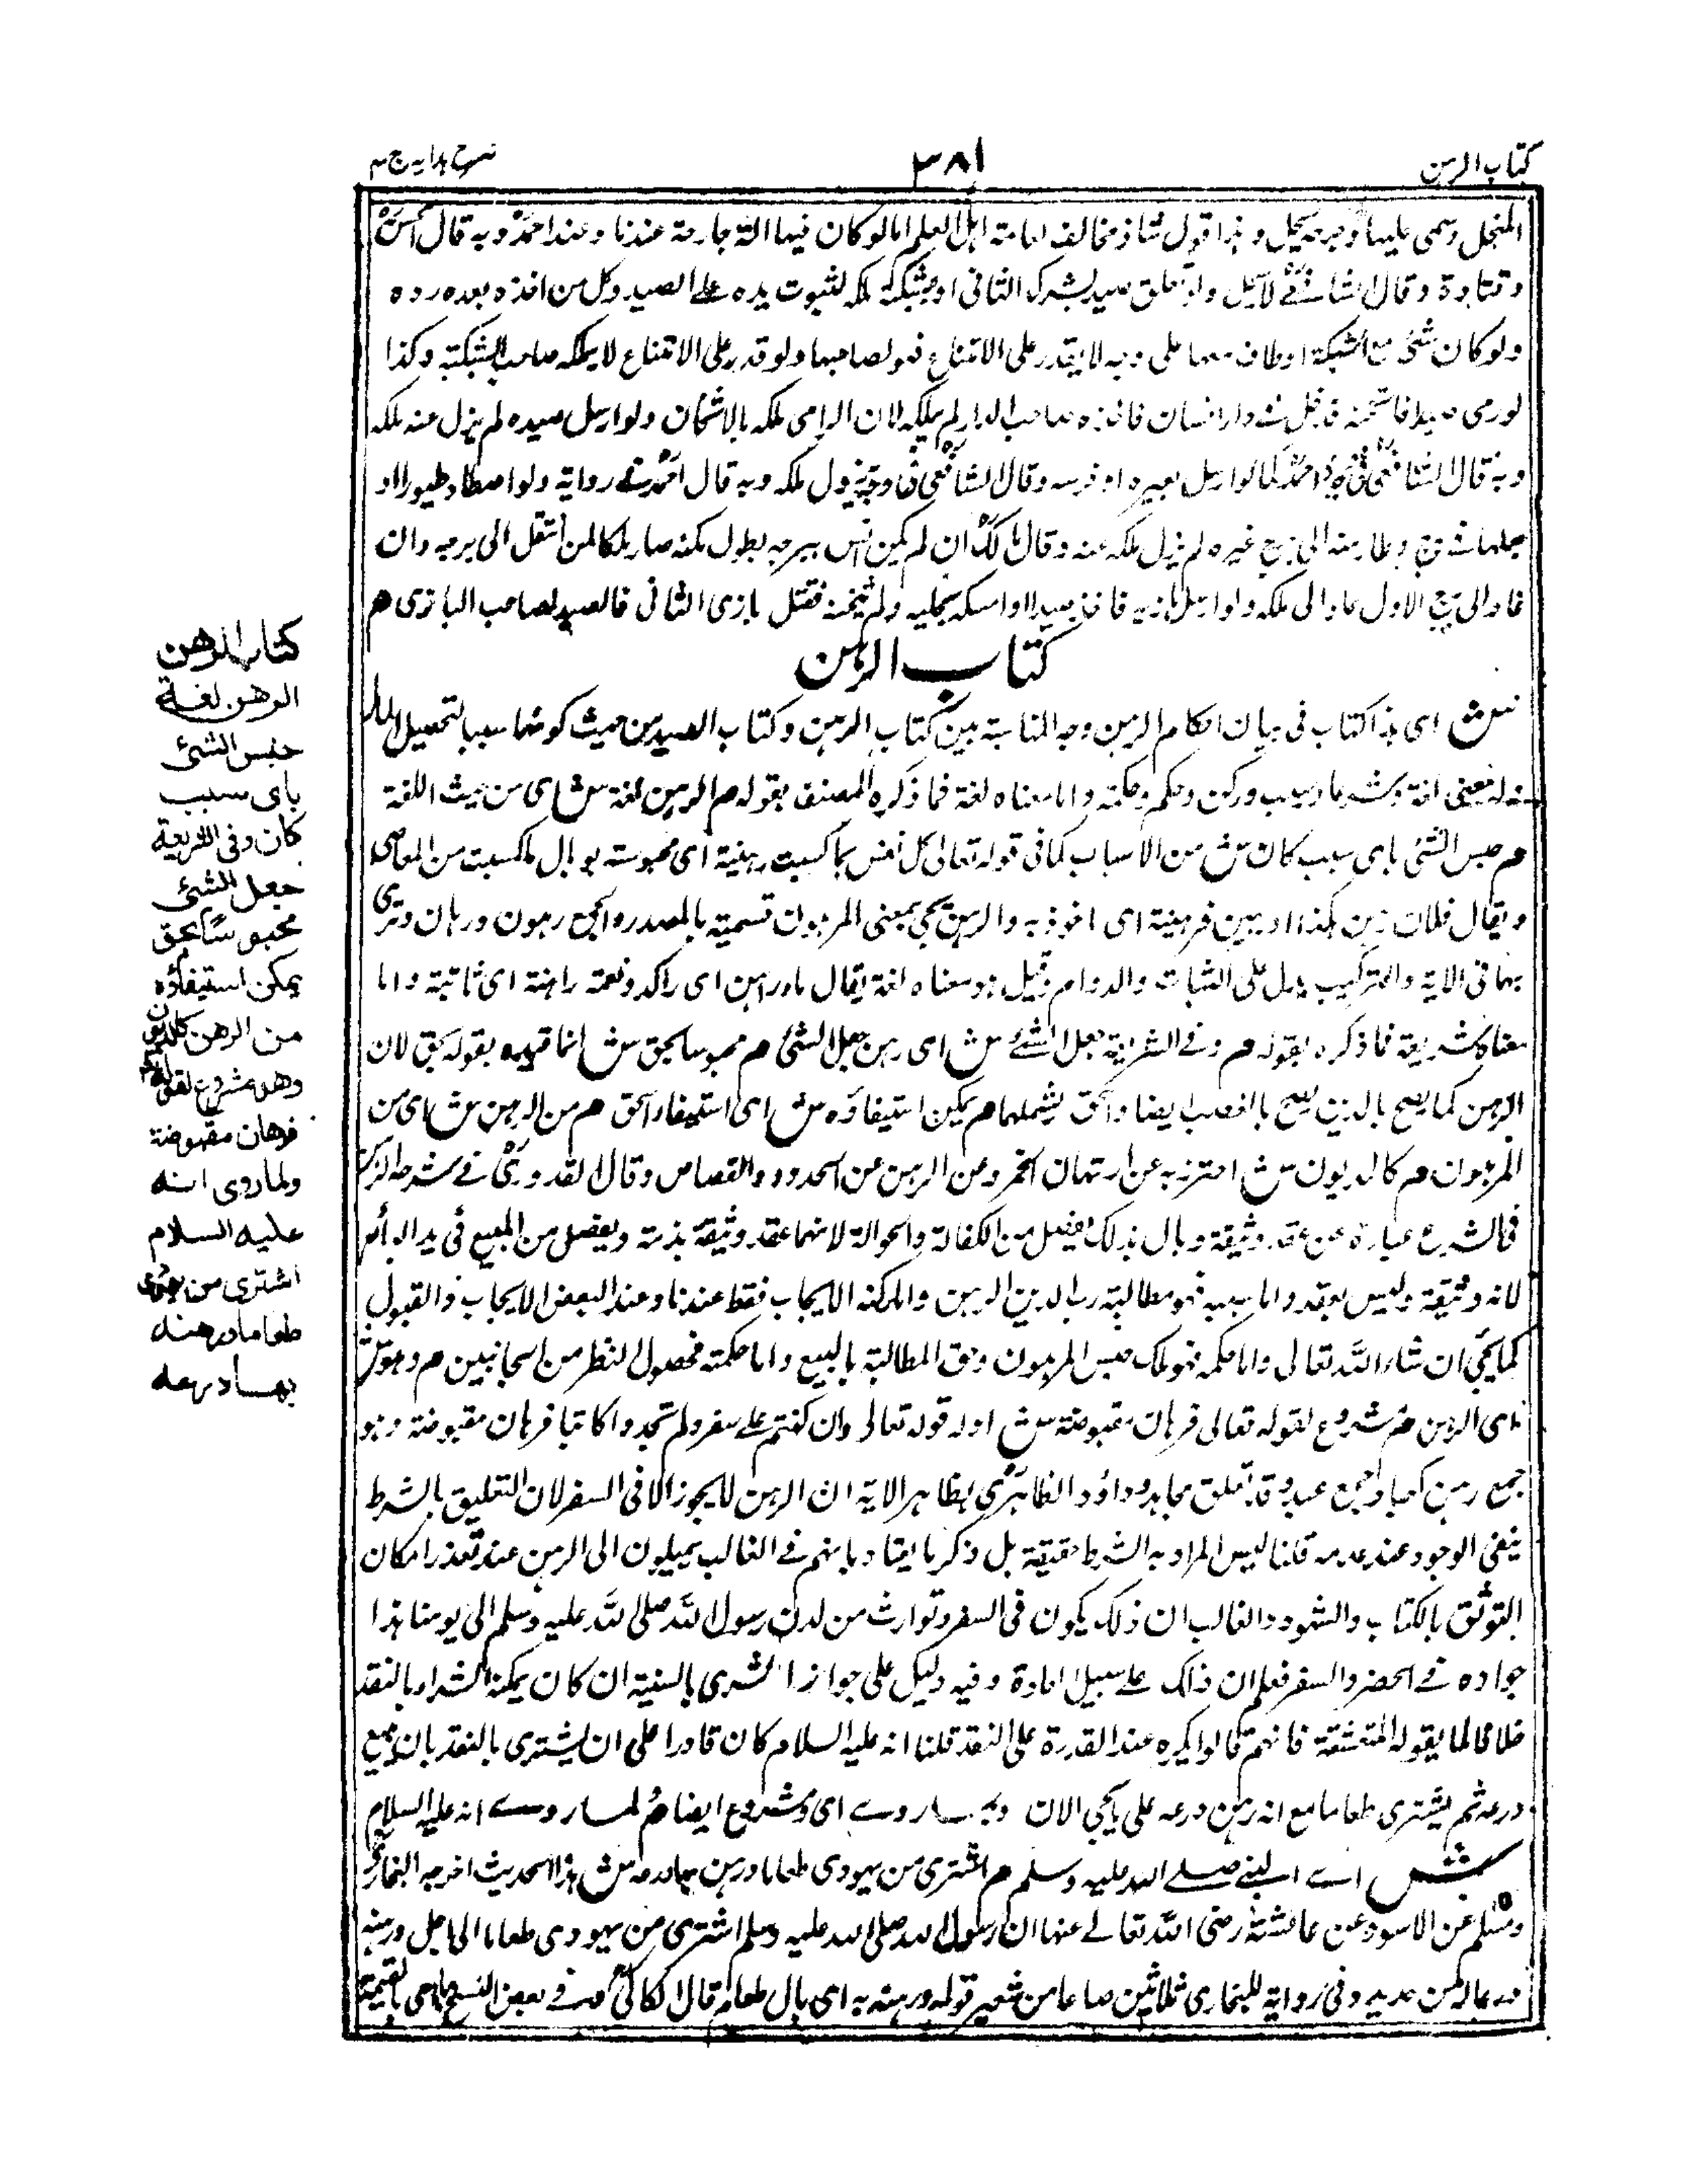 كتاب الرهن
٣٨١
شرح هدايه ج ٣
المنجل وسمى عليها وجرحه يحل وهذا قول شاذ مخالف لعامة اهل العلم اما لو كان فيها الة جارحة عندنا وعند احمدؒ وبه قال الحسنؒ
وقتادة وقال الشافعےؒ لا يحل ولو تعلق صيد بشرك الثانى او بشبكته ملكه لثبوت يده علے الصيد وكل من اخذه بعده رده
ولو كان شئ مع الشبكة او طاف معها على وجه لا يقدر على الامتناع فهو لصاحبها ولو قدر على الامتناع لا يملكه صاحب الشبكة وكذا
لو رمى صيدا فاثخنه فدخل فے دار انسان فاخذه صاحب الدار لم يملكه لان الرامى ملكه بالاثخان ولو ارسل صيده لم يزل عنه ملكه
وبه قال الشافعىؒ فى وجه واحمدؒ كما لو ارسل بعيره او فرسه وقال الشافعىؒ فى وجه يزول ملكه وبه قال احمدؒ فے رواية ولو اصطاد طيورا او
جعلها فے برج وطار منه الى برج غيره لم يزل ملكه عنه وقال مالكؒ ان لم يكن انس ببرجه بطول مكثه صار ملكا لمن انتقل الى برجه وان
عاد الى برج الاول عاد الى ملكه ولو ارسل بازيه فاخذ صيدا او امسكه بمخلبه ولم يثخنه فقتل بازى الثانى فالصيد لصاحب البازى هم
كتاب الرهن
ش اى هذا كتاب فى بيان احكام الرهن وجه المناسبة بين كتاب الرهن وكتاب الصيد من حيث كونهما سببا لتحصيل المال
وله معنى لغة وشرعا وسبب وركن وحكم وحكمة واما معناه لغة فما ذكره المصنف بقوله هم الرهن لغة ش اى من حيث اللغة
هم حبس الشئ باى سبب كان ش من الاسباب كما فى قوله تعالى كل نفس بما كسبت رهينة اى محبوسة بوبال ما كسبت من المعاصى
ويقال فلان رهن بكذا او رهين ورهينة اى ماخوذ به والرهن يجئ بمعنى المرهون تسمية بالمصدر والجمع رهون ورهان وقرئ
بهما فى الاية والتركيب يدل على الثبات والدوام وقيل هو معناه لغة يقال ماء راهن اى راكد ونعمة راهنة اى ثابتة واما
معناه شريعة فما ذكره بقوله هم وفے الشريعة جعل الشئے ش اى رهن جعل الشئ هم محبوسا بحق ش انما قيده بقوله بحق لان
الرهن كما يصح بالدين يصح بالغصب ايضا والحق يشملهما هم يمكن استيفاؤه ش اى استيفاء الحق هم من الرهن ش اى من
المرهون هم كالديون ش احترز به عن ارتهان الخمر وعن الرهن عن الحدود والقصاص وقال القدورىؒ فے شرحه الرهن
فى الشرع عبارة عن عقد وثيقة وبال بذلك يفصل من الكفالة والحوالة لانهما عقد وثيقة بذمة ويفصل من المبيع فى يد البائع
لانه وثيقة وليس بعقد واما سببه فهو مطالبة رب الدين الرهن واما ركنه الايجاب فقط عندنا وعند البعض الايجاب والقبول
كما يجئ ان شاء الله تعالى واما حكمه فهو ملك حبس المرهون وحق المطالبة بالبيع واما حكمته فحصول النظر من الجانبين هم وهو ش
اى الرهن هم مشروع لقوله تعالى فرهان مقبوضة ش اوله قوله تعالى وان كنتم علے سفر ولم تجدوا كاتبا فرهان مقبوضة وهو
جمع رهن كعباد جمع عبد وقد تعلق مجاهد وداؤد الظاهرىؒ بظاهر الاية ان الرهن لا يجوز الا فى السفر لان التعليق بالشرط
ينفى الوجود عند عدمه قلنا ليس المراد به الشرط حقيقة بل ذكر ما يعتاد بانهم فے الغالب يميلون الى الرهن عند تعذر امكان
التوثق بالكتاب والشهود والغالب ان ذلك يكون فى السفر وتوارث من لدن رسول الله صلى الله عليه وسلم الى يومنا هذا
جوازه فے الحضر والسفر فعلم ان ذلك علے سبيل العادة وفيه دليل على جواز الشرى بالنسية ان كان يمكنه الشراء بالنقد
خلافا لما يقوله المتقشفة فانهم قالوا يكره عند القدرة على النقد قلنا انه عليه السلام كان قادرا على ان يشترى بالنقد بان يبيع
درعه ثم يشترى طعاما مع انه رهن درعه على ما يجئ الان وبما روے اى مشروع ايضا هم لما روے انه عليه السلام
ش اے النبے صلے الله عليه وسلم هم اشترى من يهودى طعاما ورهن بها درعه ش هذا الحديث اخرجه البخارى
ومسلم عن الاسود عن عائشة رضى الله تعالے عنها ان رسول الله صلى الله عليه وسلم اشترى من يهودى طعاما الى اجل ورهنه
درعا له من حديد وفى رواية للبخارى ثلاثين صاعا من شعير قوله ورهنه به اى بال طعام قال الكاكىؒ وفے بعض النسخ بها اى بقيمتها
كتاب الرهن
الرهن لغة
حبس الشئ
باى سبب
كان وفى الشريعة
جعل الشئ
محبوسا بحق
يمكن استيفاؤه
من الرهن كالديون
وهو مشروع لقوله تعالى
فرهان مقبوضة
ولما روى انه
عليه السلام
اشترى من يهودى
طعاما ورهنه
بها درعه